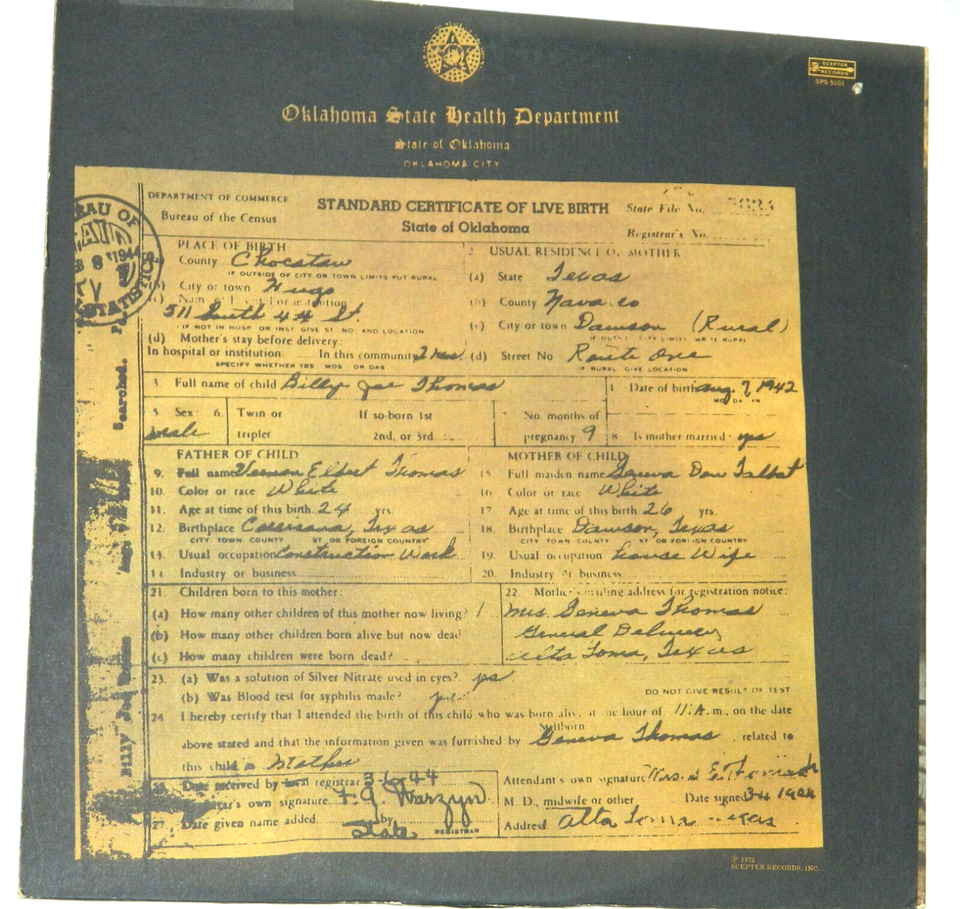 SCEPTER
RECORDS
SPS 5101
Oklahoma State Health Department
State of Oklahoma
OKLAHOMA CITY
BUREAU OF
STATISTICS
DEPARTMENT OF COMMERCE
Bureau of the Census
STANDARD CERTIFICATE OF LIVE BIRTH
State of Oklahoma
State File No.
Registrar's No.
PLACE OF BIRTH:
County Choctaw
IF OUTSIDE OF CITY OR TOWN LIMITS PUT RURAL
City or town Hugo
511 South 4th St.
IF NOT IN HOSP OR INST GIVE ST NO AND LOCATION
(d) Mother's stay before delivery:
In hospital or institution In this community 2 mos.
SPECIFY WHETHER YRS MOS OR DAS
2 USUAL RESIDENCE OF MOTHER
(a) State Texas
(b) County Navarro
(c) City or town Dawson (Rural)
(d) Street No Route One
IF RURAL GIVE LOCATION
3. Full name of child Billy Joe Thomas
4 Date of birth Aug. 7, 1942
MO DA YR
5 Sex: male
6. Twin or triplet
If so-born 1st
2nd, or 3rd
7 No. months of pregnancy 9
8 Is mother married yes
FATHER OF CHILD
9. Full name Vernon Elbert Thomas
10. Color or race White
11. Age at time of this birth 24 yrs.
12. Birthplace Corsicana, Texas
CITY TOWN COUNTY ST OR FOREIGN COUNTRY
13. Usual occupation Construction Work
14. Industry or business
MOTHER OF CHILD
15 Full maiden name Geneva Talbot
16 Color or race White
17 Age at time of this birth 26 yrs.
18. Birthplace Dawson, Texas
CITY TOWN COUNTY ST OR FOREIGN COUNTRY
19. Usual occupation House Wife
20. Industry or business
21. Children born to this mother:
(a) How many other children of this mother now living? 1
(b) How many other children born alive but now dead
(c) How many children were born dead?
22 Mother's mailing address for registration notice:
Mrs Geneva Thomas
General Delivery
Alta Loma, Texas
23. (a) Was a solution of Silver Nitrate used in eyes? yes
(b) Was Blood test for syphilis made? yes
DO NOT GIVE RESULT OF TEST
24 I hereby certify that I attended the birth of this child who was born alive at the hour of 11 A.m., on the date
Stillborn
above stated and that the information given was furnished by Geneva Thomas, related to
this child as Mother
Date received by local registrar 3-6-44
Registrar's own signature. F. G. Warzyn
27 Date given name added by
State REGISTRAR
Attendant's own signature
M. D., midwife or other Date signed
Address Alta Loma Texas
Searched.
Billy Joe Thomas
℗ 1972
SCEPTER RECORDS, INC.